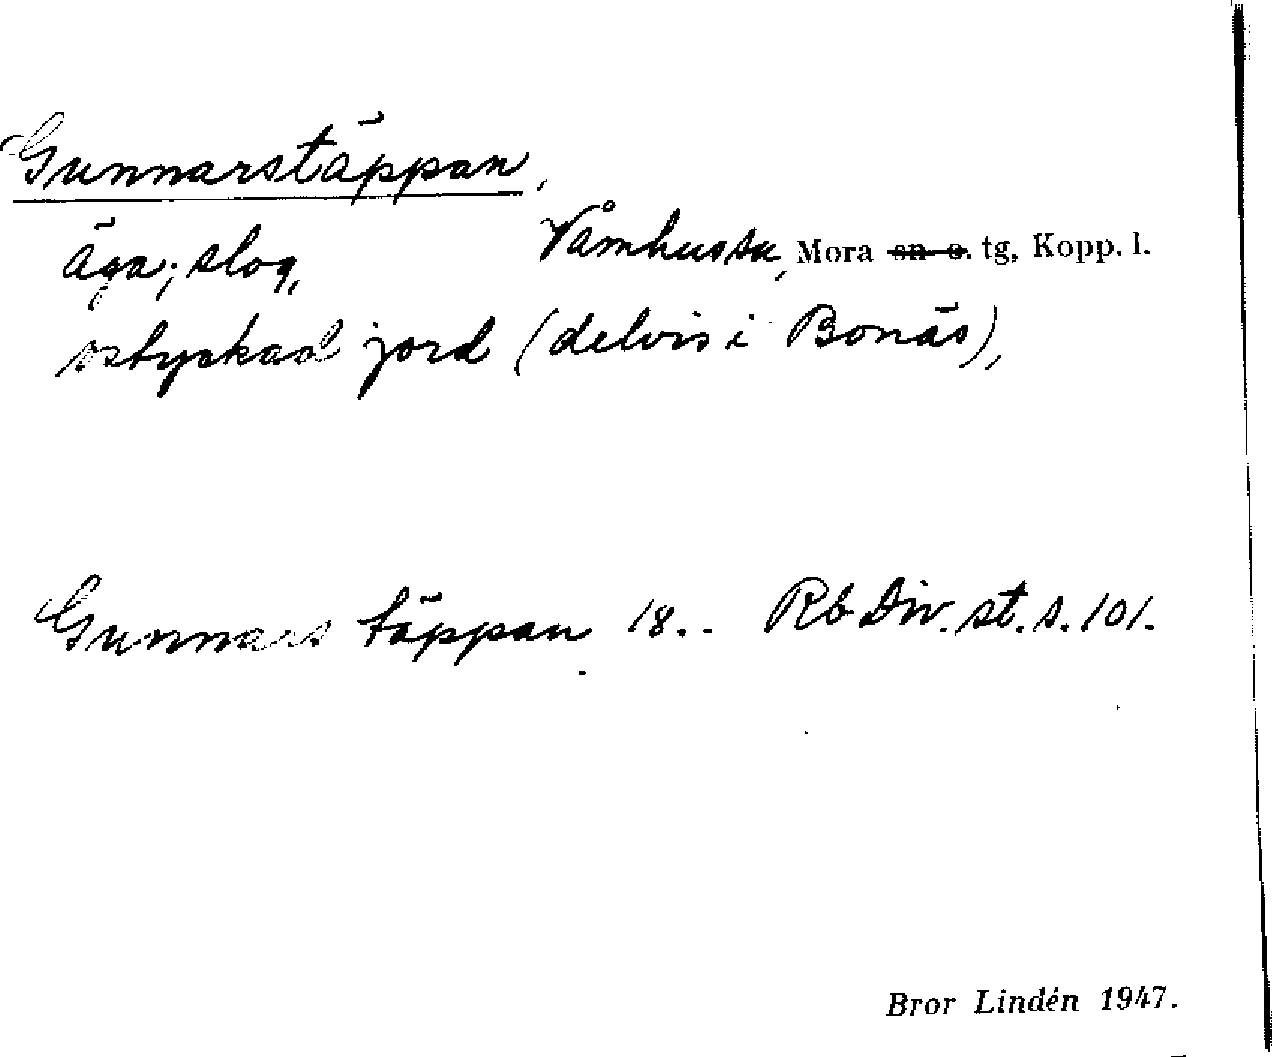 Gunnarstäppan,
Våmhus sn, Mora sn o. tg, Kopp. l.
äga; slog,
ostyckad jord (delvis i Bonäs),
Gunnars täppan 18.. Rb Div. st. s. 101.
Bror Lindén 1947.